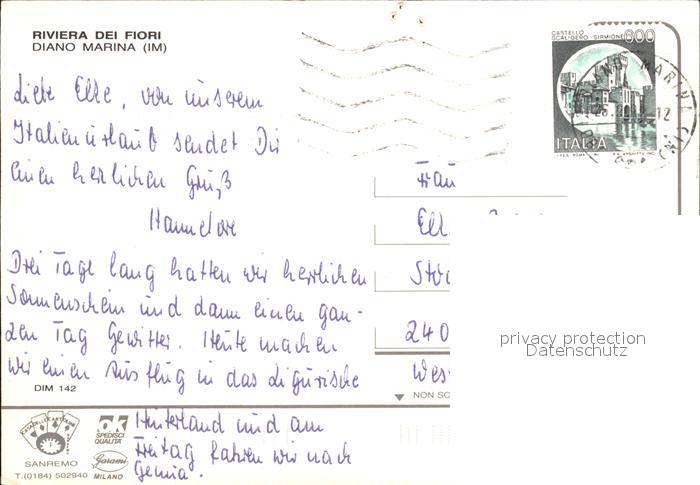 RIVIERA DEI FIORI
DIANO MARINA (IM)
CASTELLO
SCALIGERO - SIRMIONE
800
ITALIA
Liebe Elke, von unserem
Italienurlaub sendet Dir
einen herzlichen Gruß
Hannelore
Drei Tage lang hatten wir herrlichen
Sonnenschein und dann einen gan-
zen Tag Gewitter. Heute machen
wir einen Ausflug in das Ligurische
Hinterland und am
Freitag fahren wir nach
Genua.
Frau
240
privacy protection
Datenschutz
DIM 142
ok
SPEDISCI
QUALITA'
Garami
MILANO
SANREMO
T.(0184) 502940